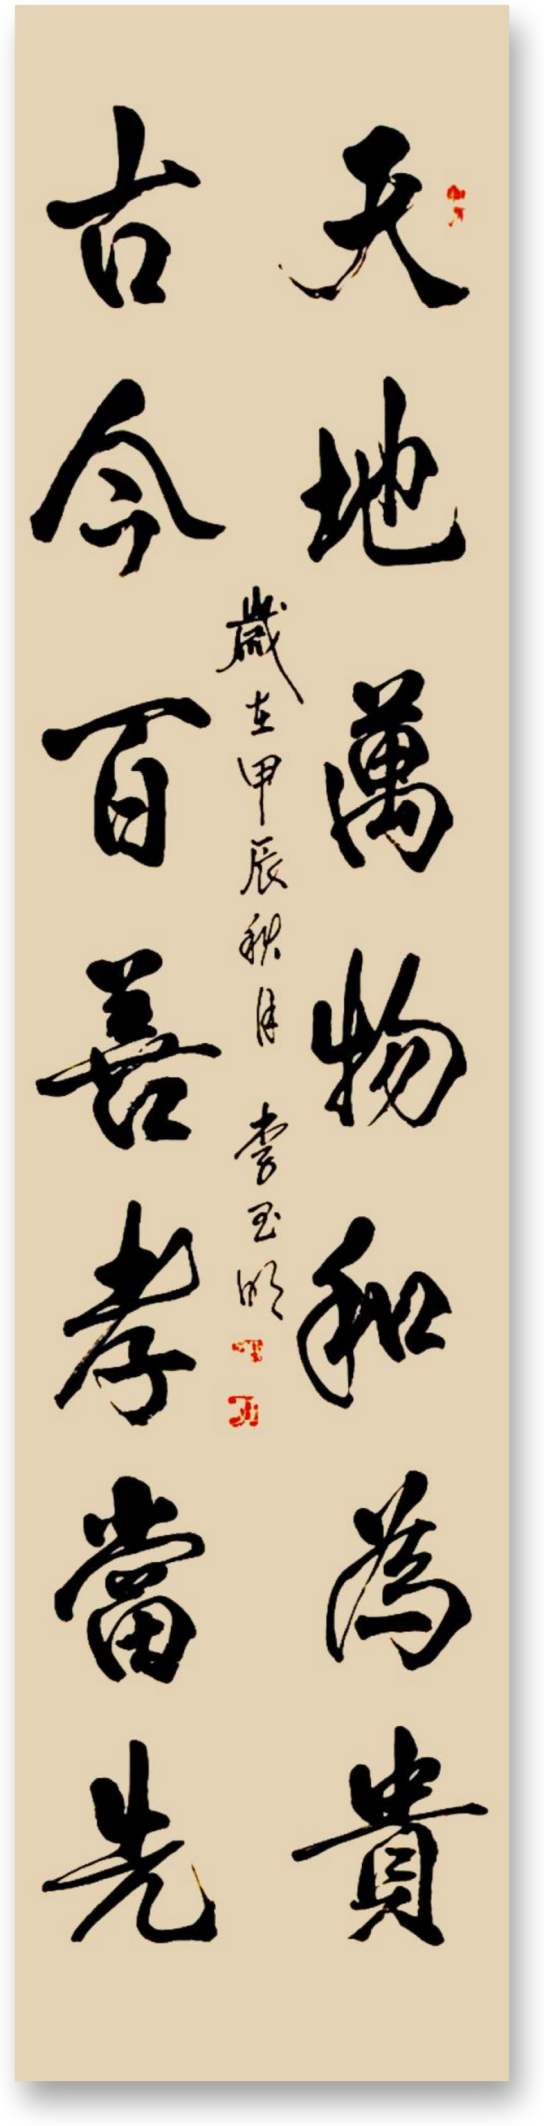 天地萬物和為貴
古今百善孝當先
歲在甲辰秋月 李玉明